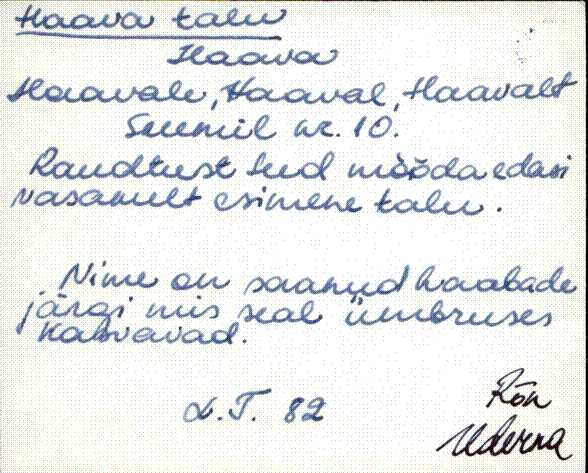 Haava talu
Haava
Haavale, Haaval, Haavalt
Skeemil nr. 10.
Raudteest teed mööda edasi
vasakult esimene talu.
Nime on saanud haabade
järgi mis seal ümbruses
kasvavad.
L.T. 82
Rõn
Uderna